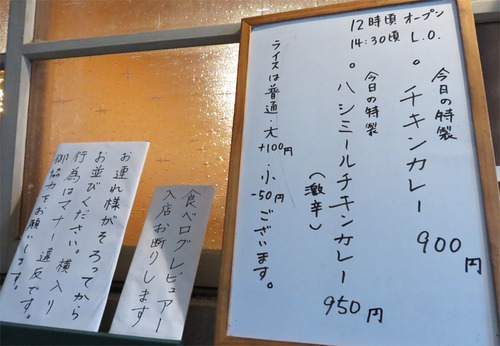 12時頃 オープン
14:30頃 L.O.
今日の特製
。チキンカレー 900円
今日の特製
。ハシミールチキンカレー 950円
(激辛)
ライスは普通・大+100円・小-50円ございます。
食べログレビュアー
入店お断りします
お連れ様がそろってから
お並びください。横入り
行為はマナー違反です。
御協力下お願いします。